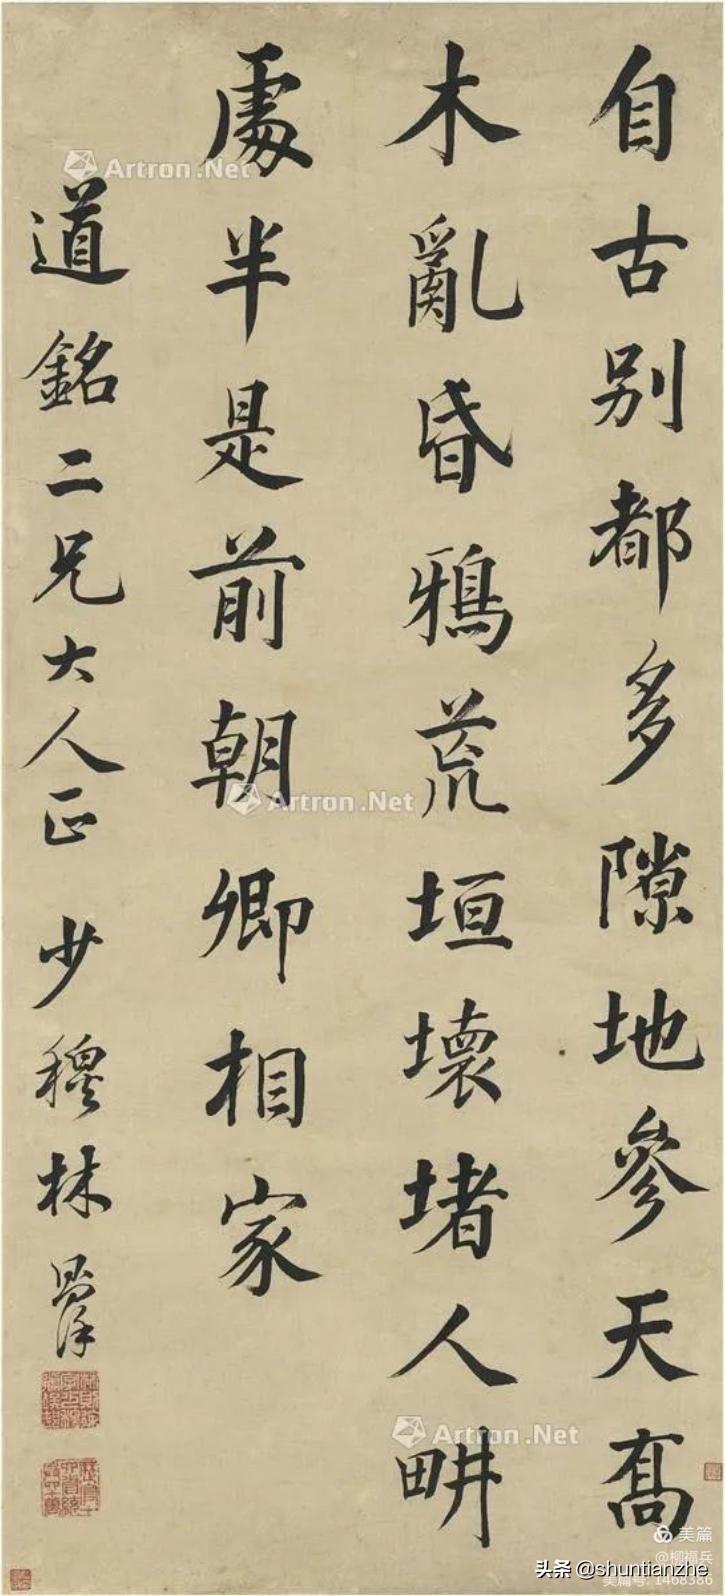 自古別都多隙地參天髙
木亂昏鴉荒垣壞堵人畊
處半是前朝卿相家
道銘二兄大人正 少穆林則徐
Artron.Net
Artron.Net
Artron.Net
美篇
@柳福兵
美篇号: 1468386
头条 @shuntianzhe